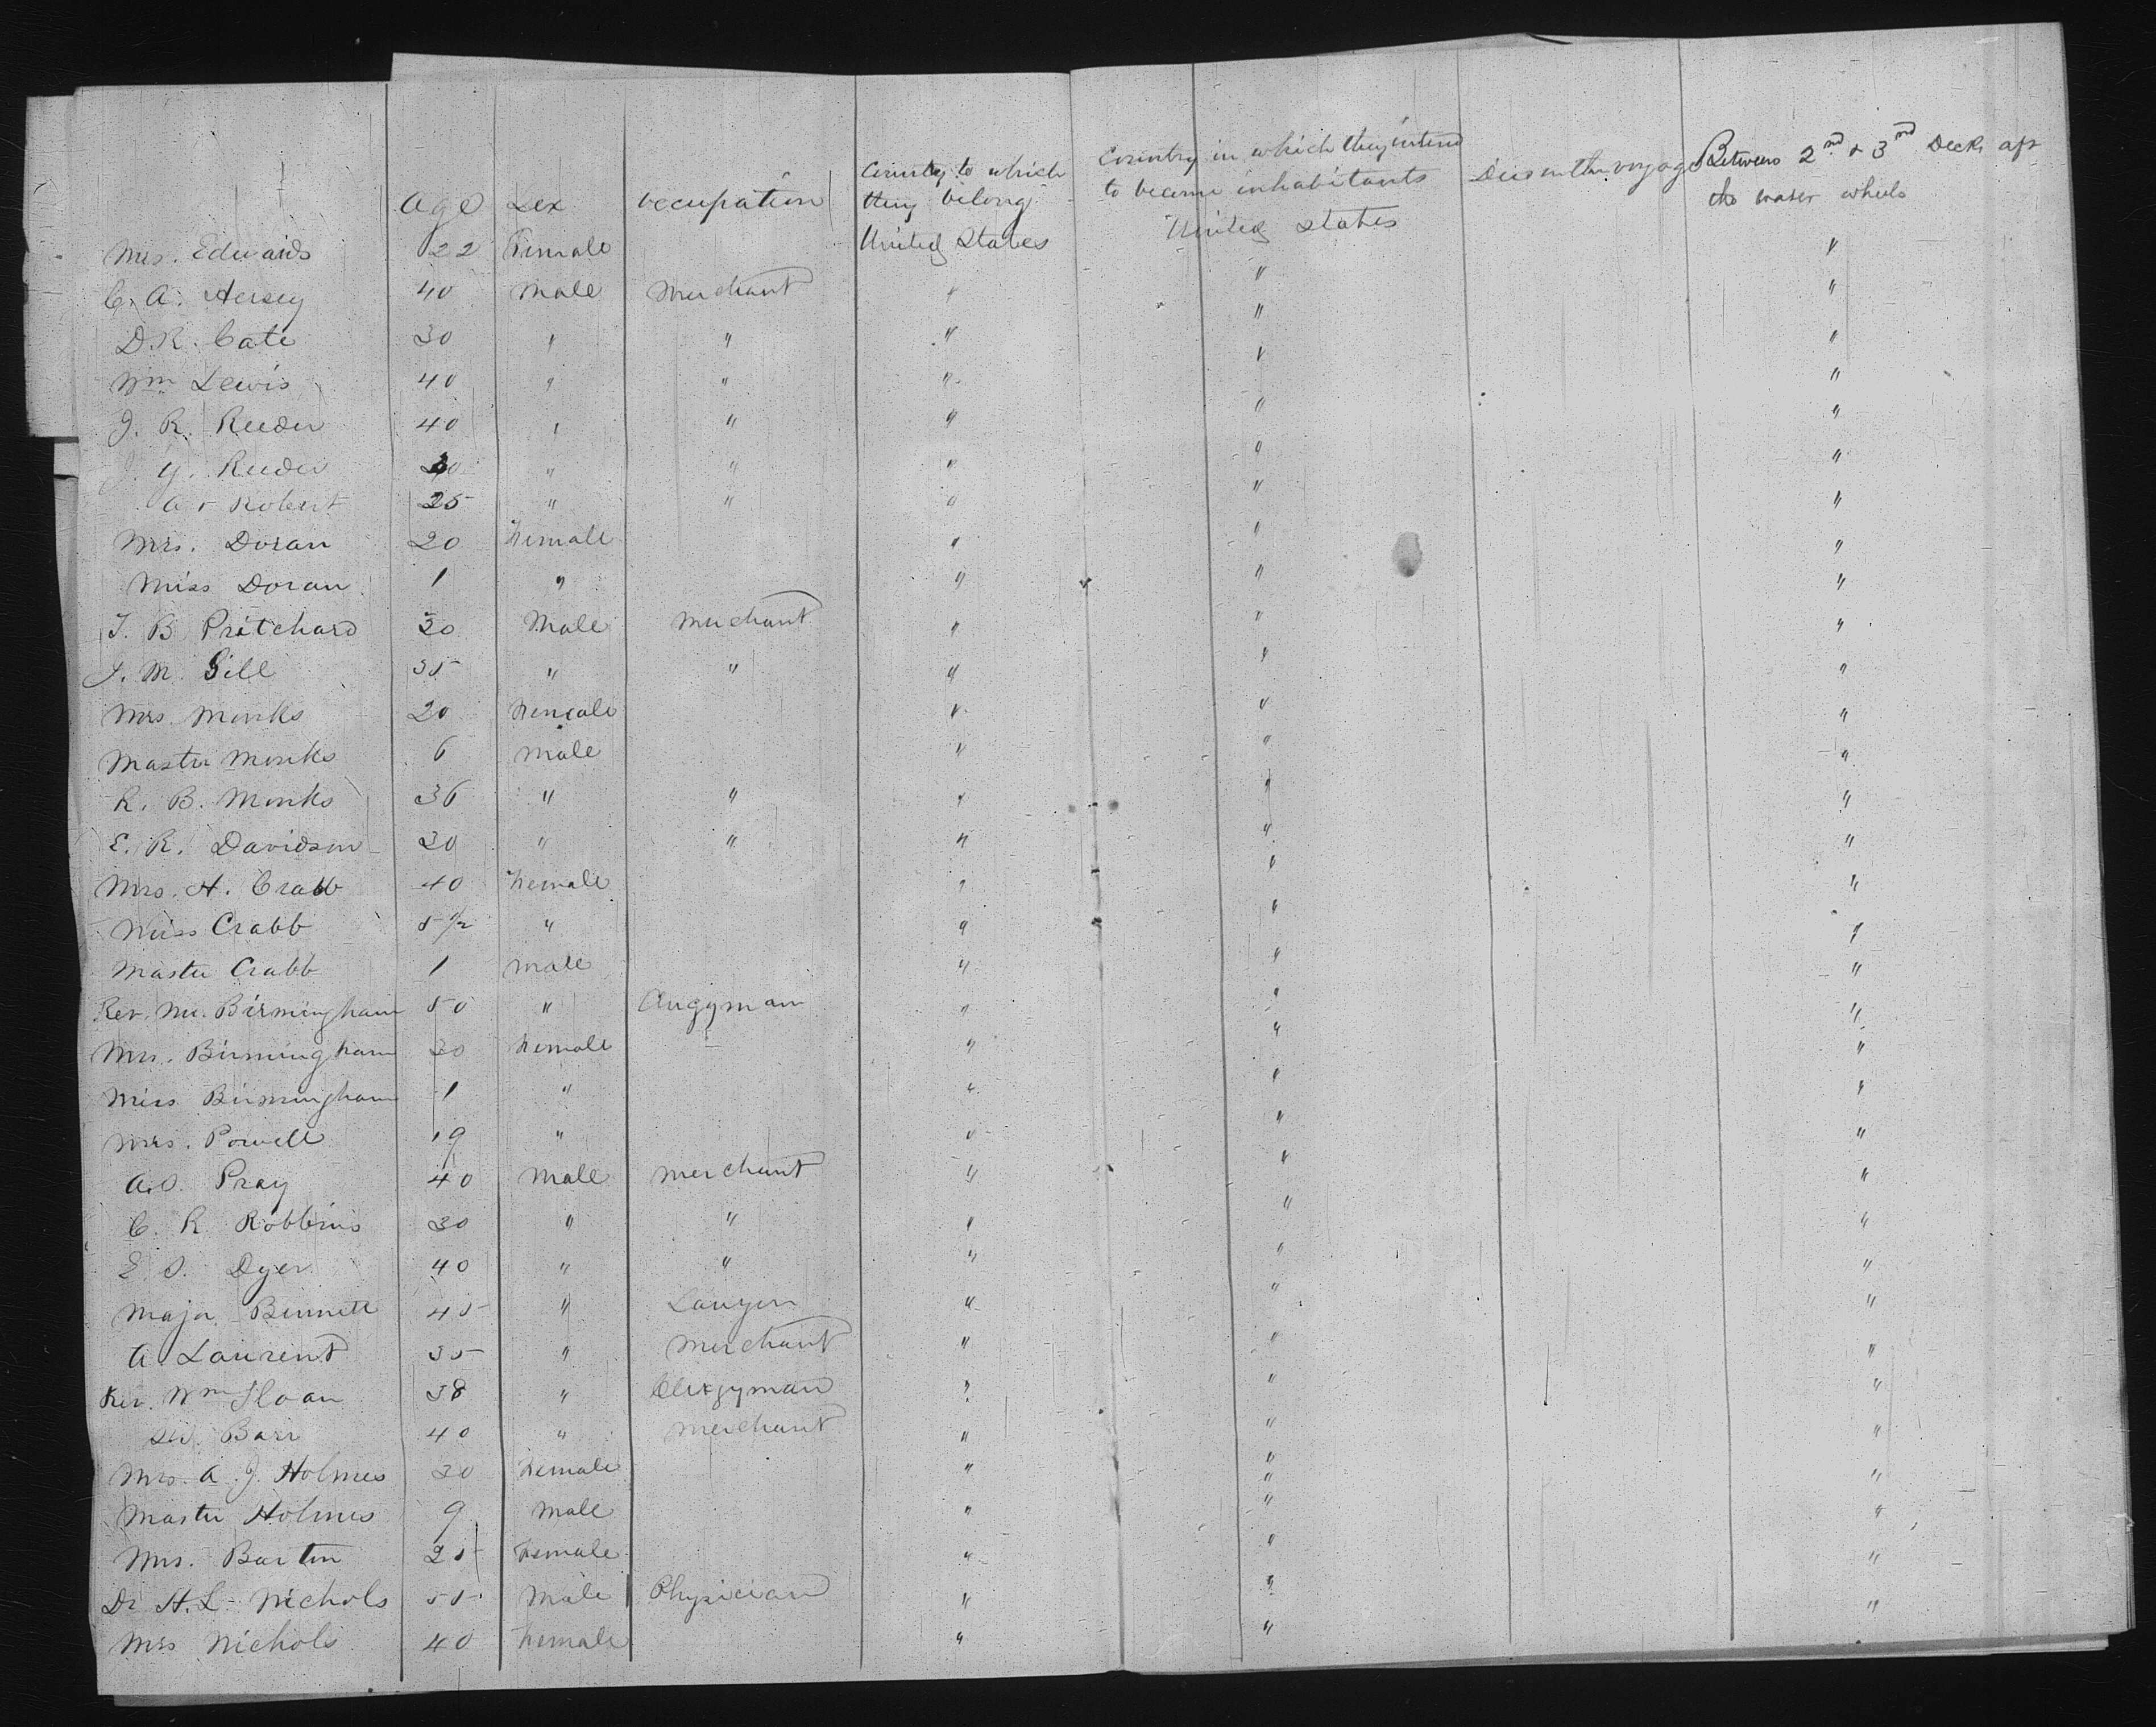 Age Sex Occupation Country to which they belong Country in which they intend to become inhabitants Died on the voyage Between 2nd & 3rd Deck aft the water wheels
Mrs. Edwards 22 Female United States United States "
C. A. Hersey 40 Male Merchant " " "
D. R. Cate 30 " " " " "
Wm Lewis 40 " " " " "
J. R. Reeder 40 " " " " "
J. Y. Reeder 30 " " " " "
Robert 25 " " " " "
Mrs. Doran 20 Female " " "
Miss Doran 1 " " " "
T. B Pritchard 30 Male Merchant " " "
J. M. Gill 35 " " " " "
Mrs. Monks 20 Female " " "
Master Monks 6 Male " " "
R. B. Monks 36 " " " " "
E. R. Davidson 30 " " " " "
Mrs. H. Crabb 40 Female " " "
Miss Crabb 5 1/2 " " " "
Master Crabb 1 male " " "
Rev. Mr. Birmingham 50 " Clergyman " " "
Mrs. Birmingham 30 Female " " "
Miss Birmingham 1 " " " "
Mrs. Powell 19 " " " "
A. S. Pray 40 Male Merchant " " "
C. R Robbins 30 " " " " "
E. S. Dyer 40 " " " " "
Major Bennett 45 " Lawyer " " "
A Laurent 35 " Merchant " " "
Rev. Wm Sloan 38 " Clergyman " " "
Barr 40 " Merchant " " "
Mrs. A. J. Holmes 30 Female " " "
Master Holmes 9 Male " " "
Mrs. Barton 25 Female " " "
Dr H. L. Nichols 55 Male Physician " " "
Mrs Nichols 40 Female " " "